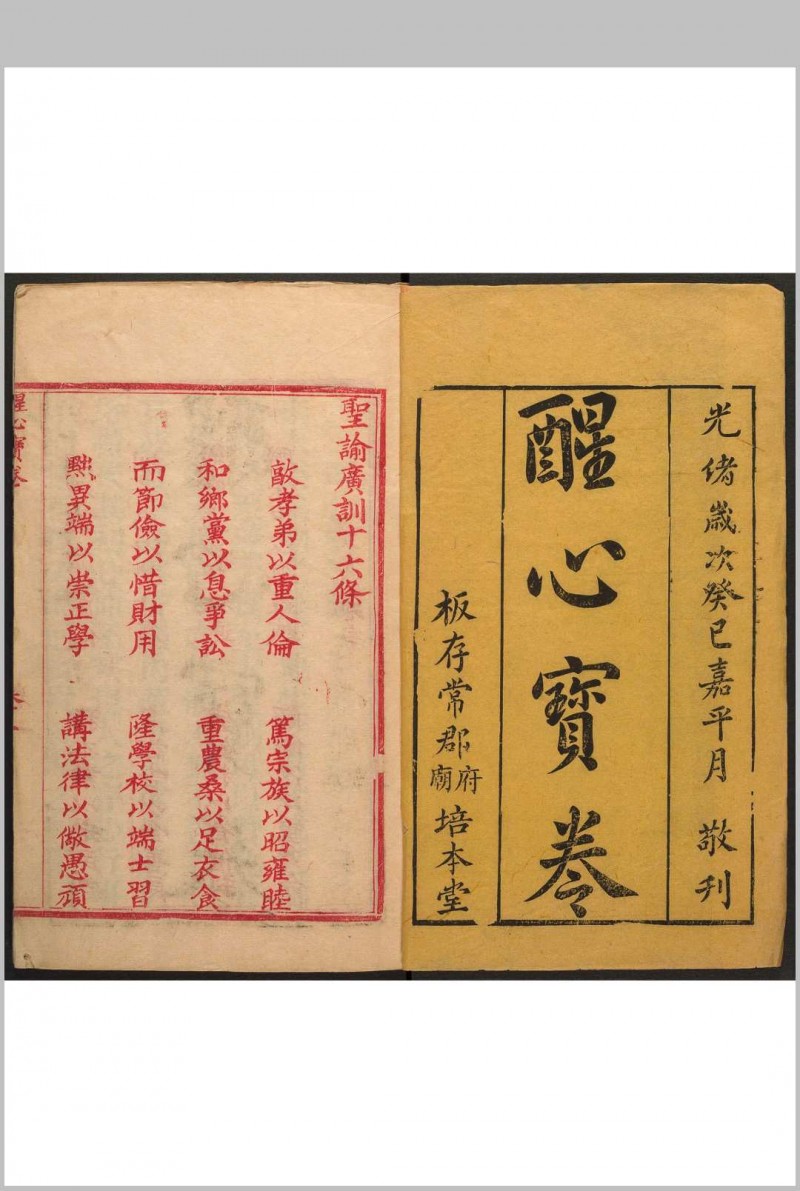 光緒歲次癸巳嘉平月 敬刊
醒心寶卷
板存常郡府廟培本堂
聖諭廣訓十六條
敦孝弟以重人倫 篤宗族以昭雍睦
和鄉黨以息爭訟 重農桑以足衣食
而節儉以惜財用 隆學校以端士習
黜異端以崇正學 講法律以儆愚頑
醒心寶卷